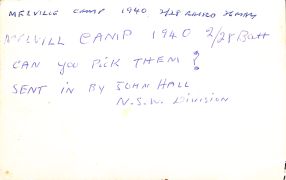 MELVILLE CAMP 1940 2/28 
MELVILL CAMP 1940 2/28 Batt
CAN YOU PICK THEM?
SENT IN BY JOHN HALL
N.S.W. DIVISION